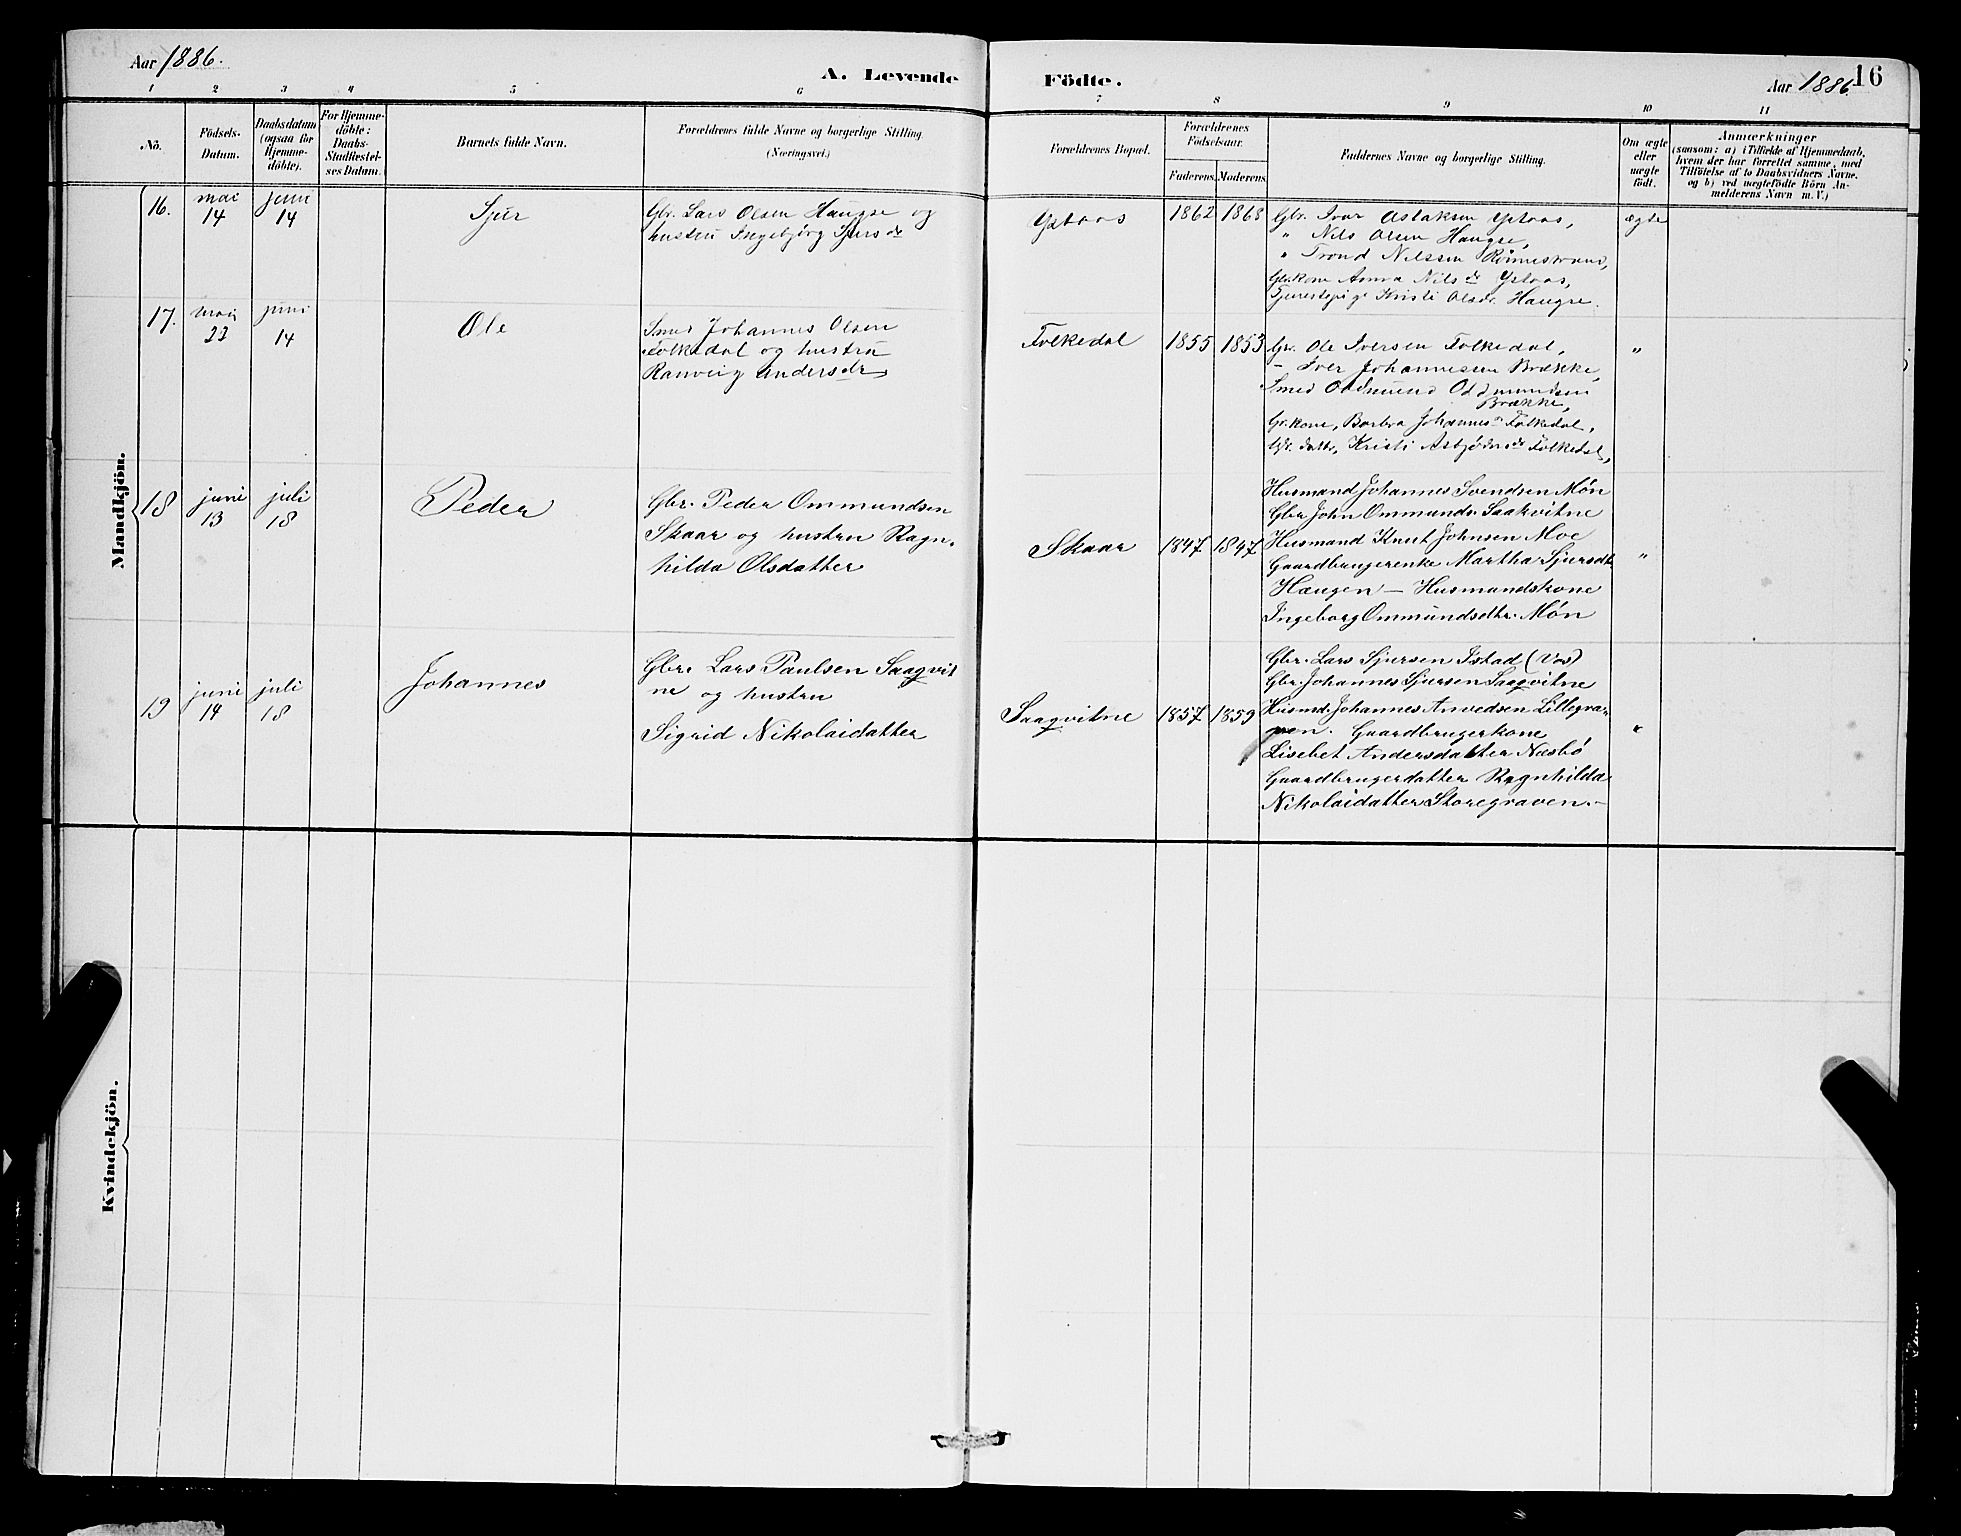 Aar 1886.
A. Levende
Födte.
Aar 1886.
16
1 2 3 4 5 6 7 8 9 10 11
No.
Födsels-
Datum.
Daabsdatum
(ogsaa for
Hjemme-
döbte).
For Hjemme-
döbte:
Daabs-
Stadfæstel-
ses Datum.
Barnets fulde Navn.
Forældrenes fulde Navne og borgerlige Stilling.
(Næringsvei.)
Forældrenes Bopæl.
Forældrenes
Födselsaar.
Faderens. Moderens.
Faddernes Navne og borgerlige Stilling.
Om ægte
eller
uægte
födt.
Anmærkninger
(saasom: a) i Tilfælde af Hjemmedaab,
hvem der har forrettet samme, med
Tilföielse af to Daabsvidners Navne.
og b) ved uægtefödte Börn An-
melderens Navn m. V.)
Mandkjön.
16.
mai
14
juni
14
Sjur
Gbr. Lars Olsen Haugse og
hustru Ingebjørg Sjursdr
Ystaas
1862 1868
Gbr. Ivar Aslaksen Ystaas,
" Nils Olsen Haugse,
" Trond Nilssen Rønnestrand,
Gbrkone Anna Nilsdr Ystaas,
Tjenestepige Kristi Olsdr. Haugse.
ægte
17.
mai
22
juni
14
Ole
Smed Johannes Olsen
Folkedal og hustru
Ranveig Andersdr
Folkedal
1855 1853
Gbr. Ole Iversen Folkedal,
- Iver Johannesen Brække,
Smed Oddmund Oddmundsen
Brække,
Gbr.kone, Barbra Johannesdr Folkedal,
Gbr. datter, Kristi Asbjørnsdr Folkedal,
"
18
juni
13
juli
18
Peder
Gbr. Peder Ommundsen
Skaar og hustru Ragn-
hilda Olsdatter
Skaar
1847 1847
Husmand Johannes Svendsen Møn
Gbr John Ommunds. Saakvitne
Husmand Knut Johnsen Moe
Gaardbrugerenke Martha Sjursdtr
Haugen — Husmandskone
Ingeborg Ommundsdtr. Møn
"
19
juni
14
juli
18
Johannes
Gbr. Lars Paulsen Saaqvit
ne og hustru
Sigrid Nikolaidatter
Saaqvitne
1857 1859
Gbr. Lars Sjursen Istad (Vos)
Gbr. Johannes Sjursen Saaqvitne
Husmd. Johannes Anvedsen Lillegra-
ven. Gaardbrugerkone
Lisebet Andersdatter Næsbø
Gaardbrugerdatter Ragnhilda
Nikolaidatter Storegraven.-
"
Kvindekjön.